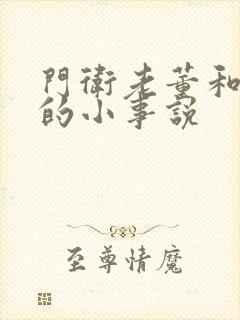 門衛老董和
的小事說
至尊情魔